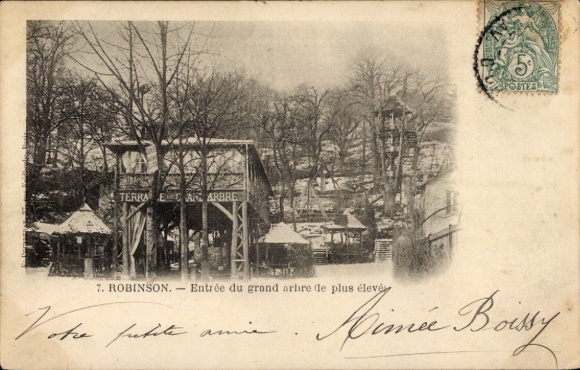 5c
POSTES
TERRASSE DU GRAND ARBRE
7. ROBINSON. — Entrée du grand arbre (le plus élevé)
Votre petite amie Aimée Boissy